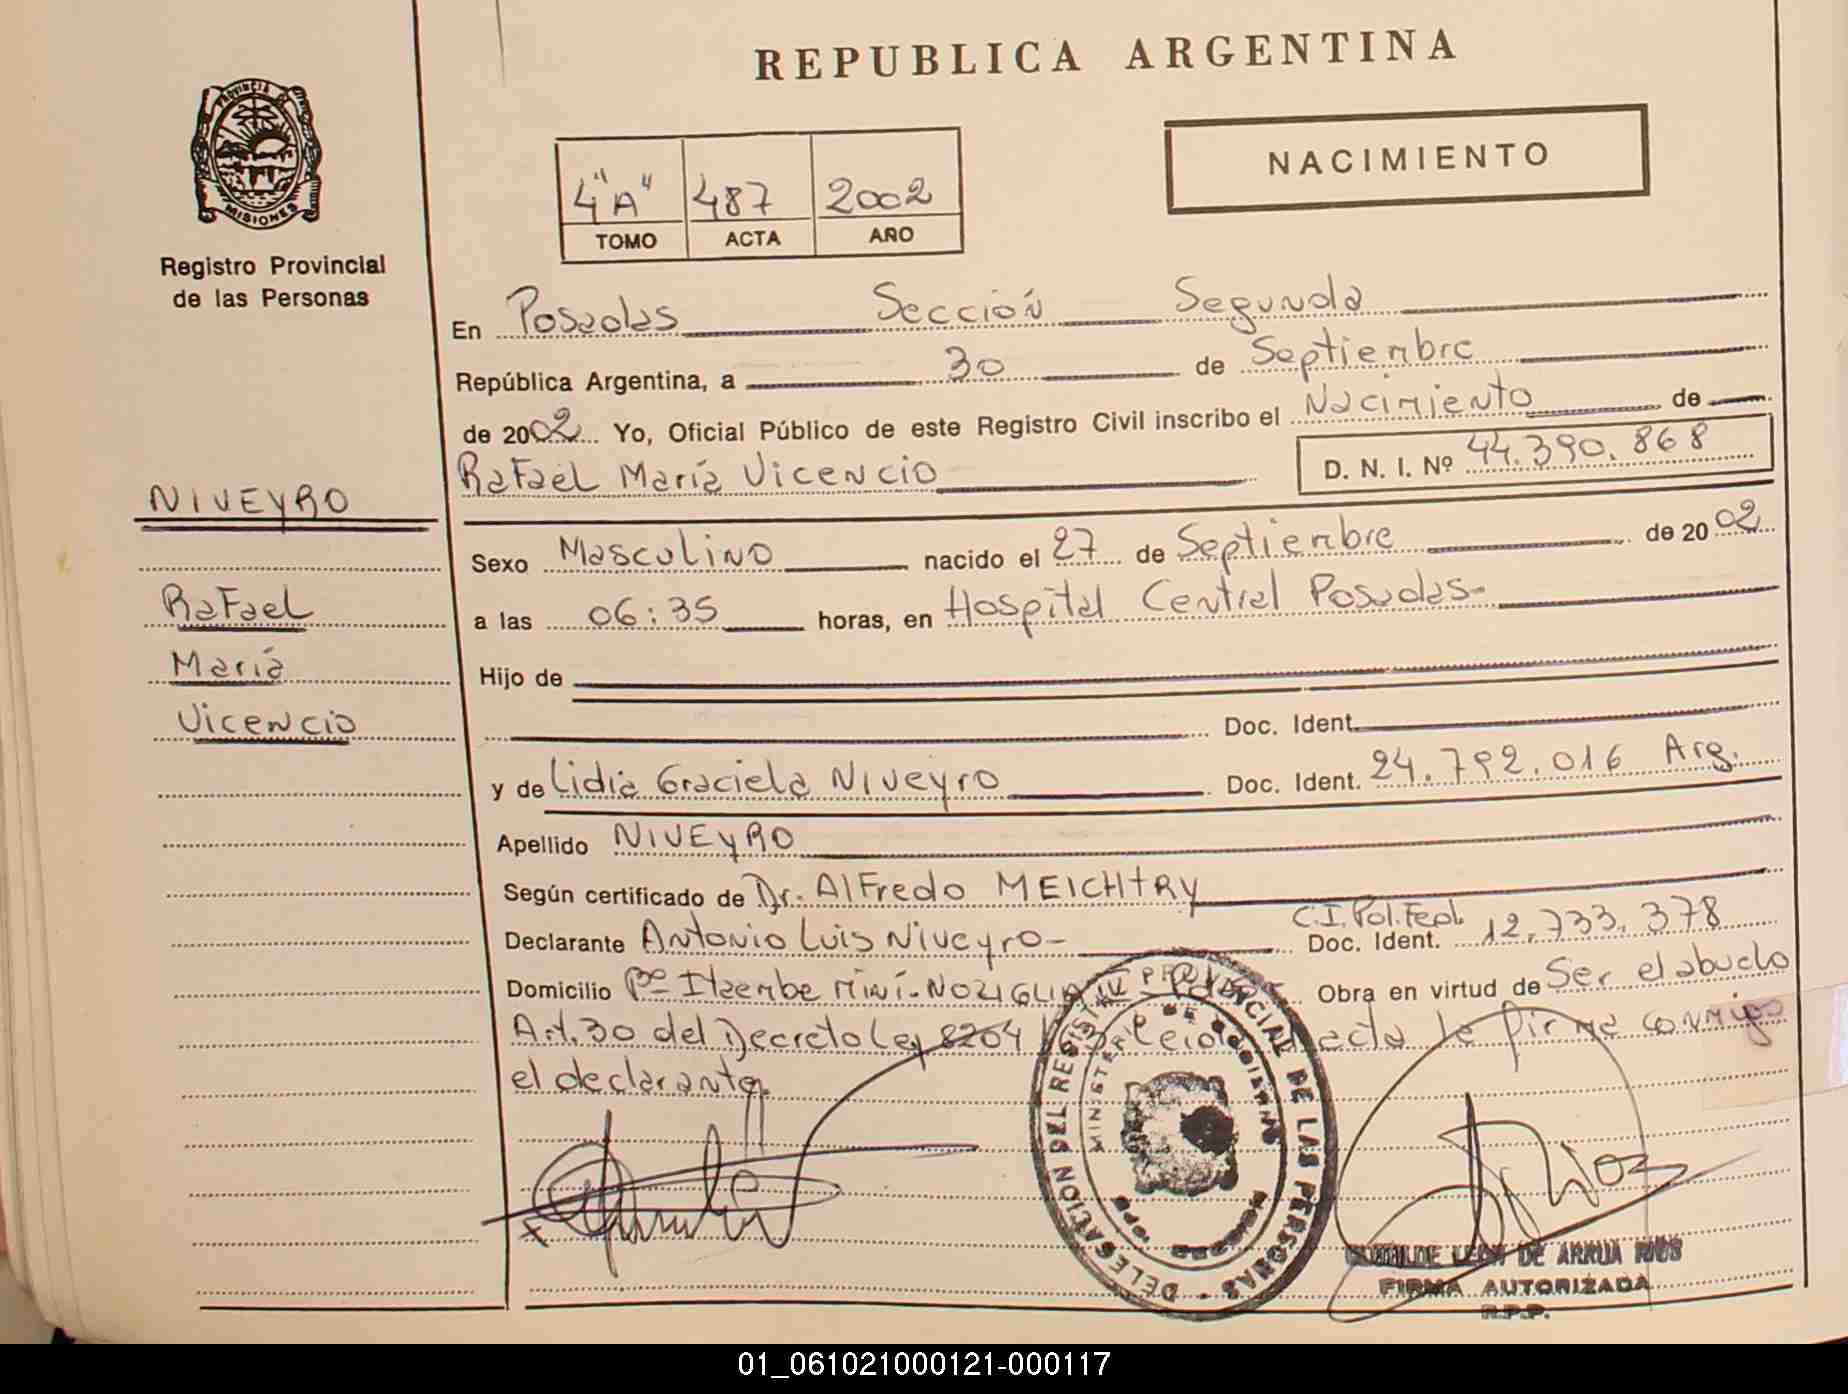 REPUBLICA ARGENTINA
PROVINCIA DE
MISIONES
Registro Provincial
de las Personas
4 "A" 487 2002
TOMO ACTA AÑO
NACIMIENTO
En Posadas Sección Segunda
República Argentina, a 30 de Septiembre
de 2002 Yo, Oficial Público de este Registro Civil inscribo el Nacimiento de
Rafael María Vicencio D. N. I. Nº 44.390.868
NIVEYRO
Rafael
María
Vicencio
Sexo Masculino nacido el 27 de Septiembre de 2002
a las 06:35 horas, en Hospital Central Posadas-
Hijo de
Doc. Ident.
y de Lidia Graciela Niveyro Doc. Ident. 24.792.016 Arg.
Apellido NIVEYRO
Según certificado de Dr. Alfredo MEICHTRY
Declarante Antonio Luis Niveyro- C.I. Pol. Fed. Doc. Ident. 12.733.378
Domicilio Bº Itaembe Miní- Obra en virtud de Ser el abuelo
Art. 30 del Decreto Ley 8204 acta la firma conmigo
el declarante.
DELEGACION DEL REGISTRO PROVINCIAL DE LAS PERSONAS
MINISTERIO DE GOBIERNO
LEON DE ARRUA RIOS
FIRMA AUTORIZADA
R.P.P.
01_061021000121-000117